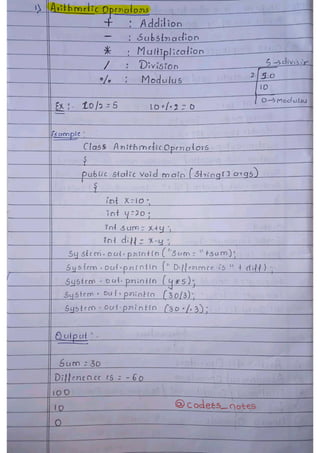 1) Arithmetic Openatons
+ : Addition
- : Substnaction
* : Multiplication
/ : Division
% : Modulus
5 → divisir
2 10
10
0 → Modulus
Ex :- 10/2 = 5 10 % 2 = 0
Example :
Class AnithmeticOpenatois
{
public static void main (String[] args)
{
int x=10;
int y=20;
int sum = x+y;
int diff = x-y;
System.out.println ("Sum = "+sum);
System.out.println ("Diffenence is " + diff);
System.out.println (y*5);
System.out.println (30/3);
System.out.println (30%3);
Output :-
Sum = 30
Diffenence is = -60
100
10
0
@codets_notes